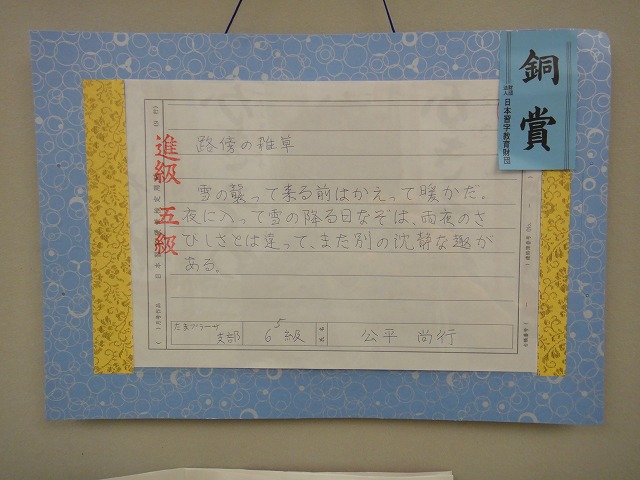 銅賞
財団法人 日本習字教育財団
進級 五級
路傍の雑草
雪の襲って来る前はかえって暖かだ。
夜に入って雪の降る日なぞは、雨夜のさ
びしさとは違って、また別の沈静な趣が
ある。
たまプラーザ
支部
6 5 級
氏名
公平 尚行